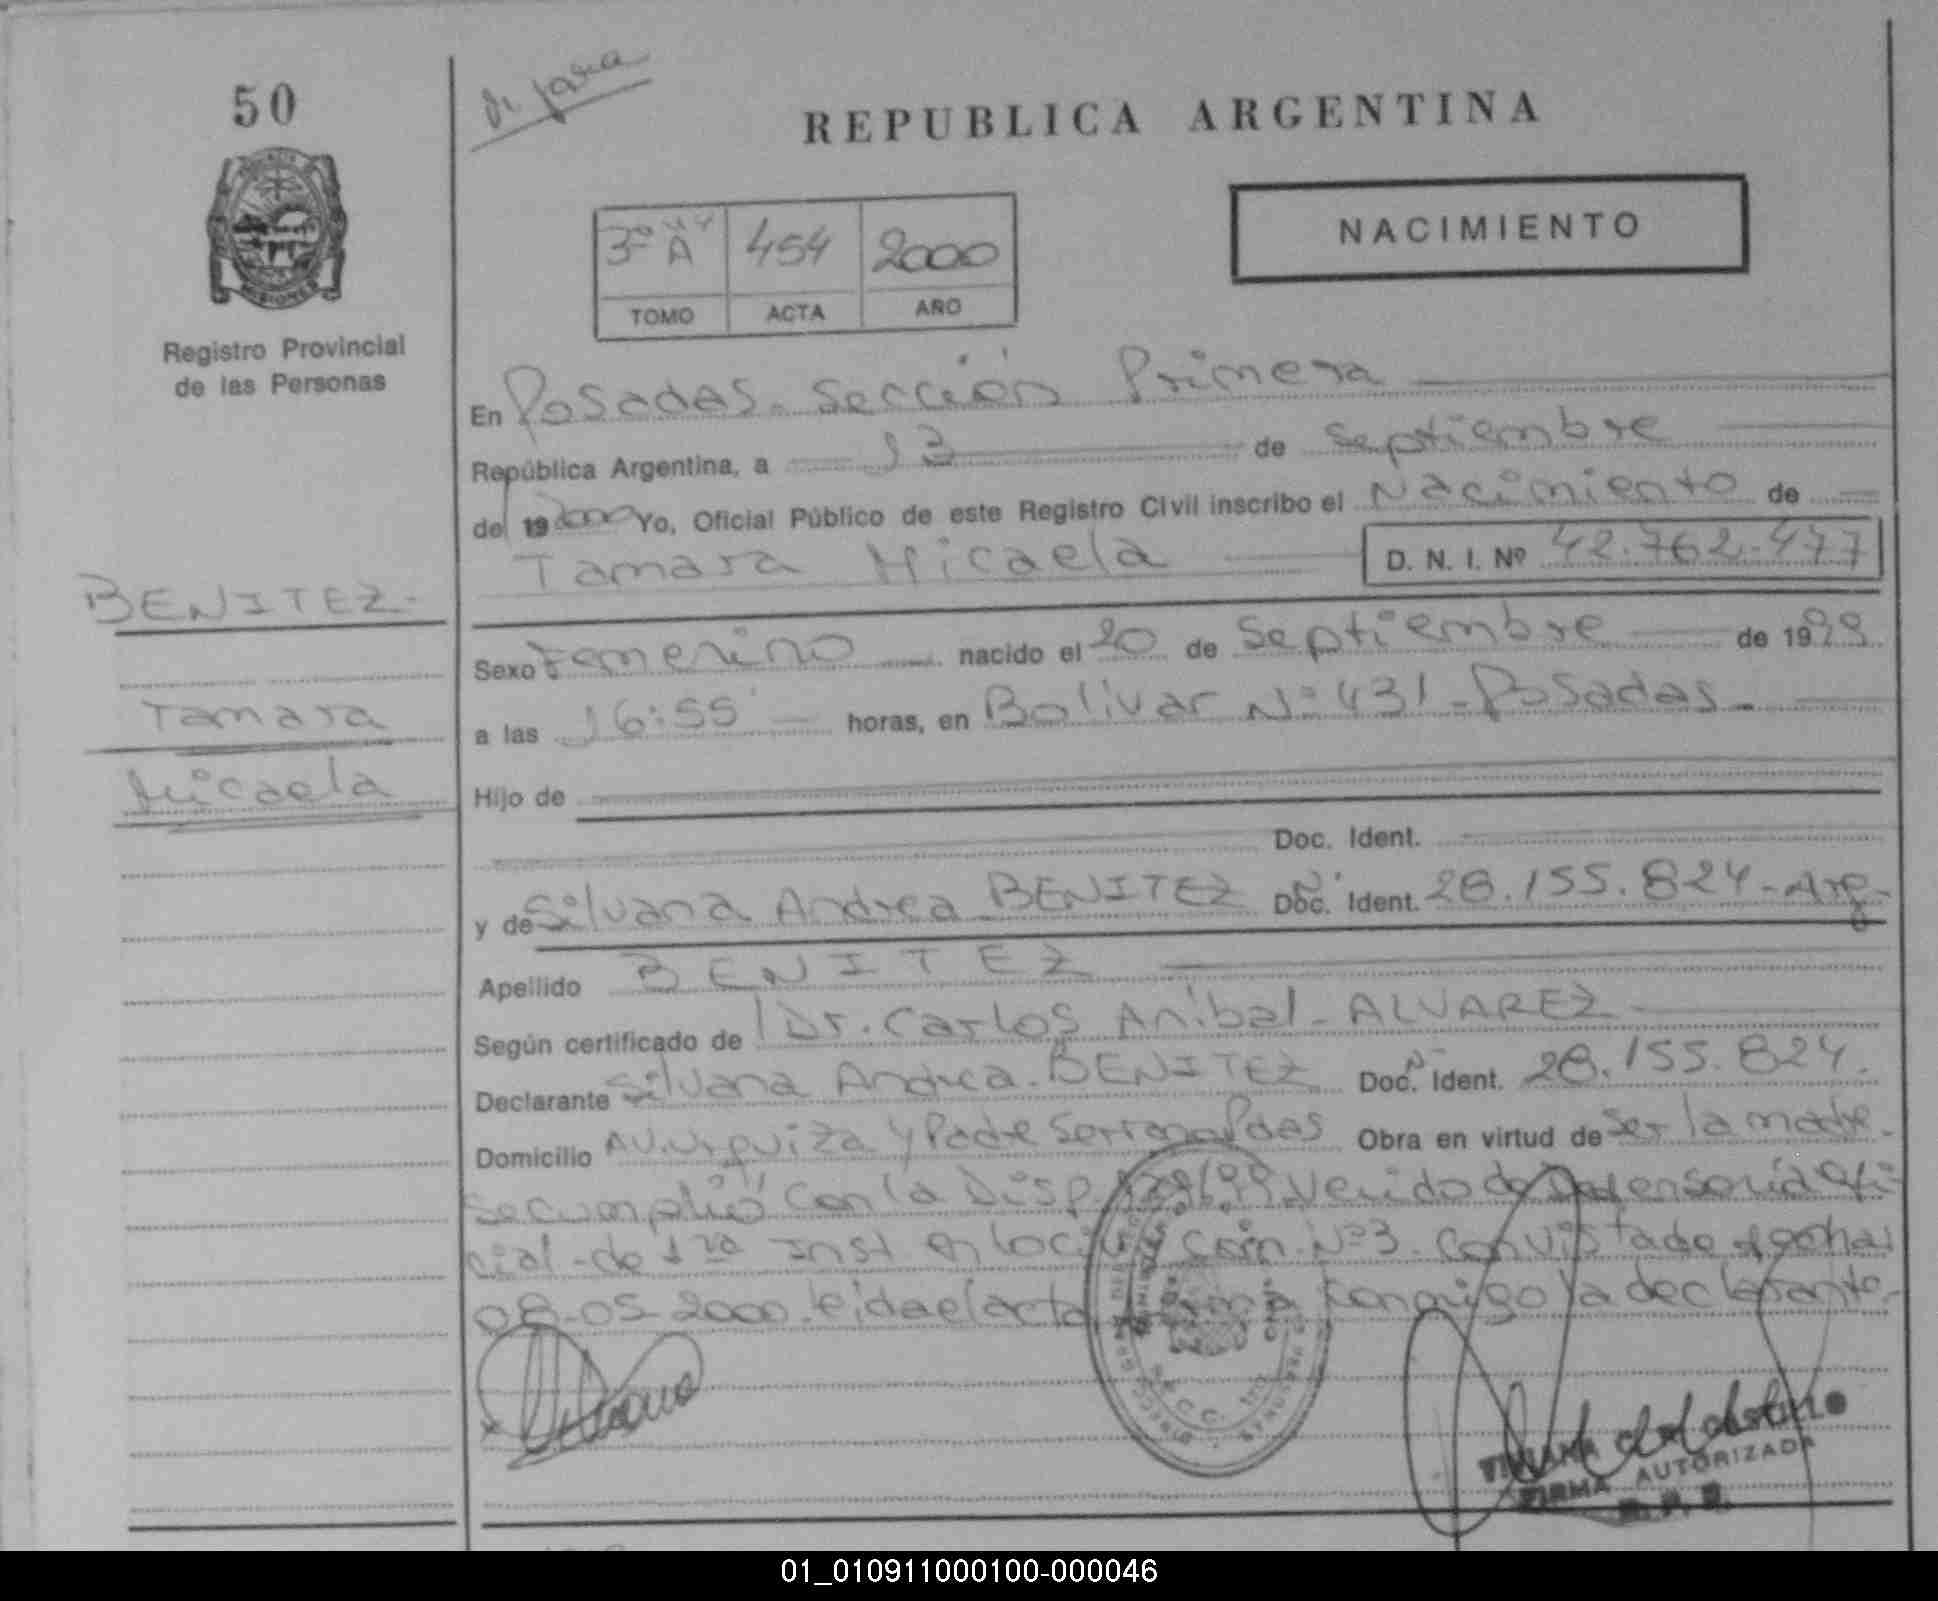 50
REPUBLICA ARGENTINA
NACIMIENTO
3º "A" 454 2000
TOMO ACTA AÑO
MISIONES
Registro Provincial
de las Personas
En Posadas. Sección Primera
República Argentina, a 13 de Septiembre
de 19 2000 Yo, Oficial Público de este Registro Civil inscribo el Nacimiento de
Tamara Micaela D. N. I. Nº 42.762.477
BENITEZ-
Tamara
Micaela
Sexo Femenino nacido el 20 de Septiembre de 1999
a las 16:55 horas, en Bolivar Nº 431-Posadas-
Hijo de
Doc. Ident.
y de Silvana Andrea BENITEZ Doc. Ident. 28.155.824-Arg-
Apellido BENITEZ
Según certificado de Dr. Carlos Anibal-ALVAREZ
Declarante Silvana Andrea-BENITEZ Doc. Ident. 28.155.824.
Domicilio AV. Urquiza y Padre Serrano Pdas Obra en virtud de ser la madre-
Se cumplió con la Disp. Venido de Defensoria Ofi-
cial-de 1ra Inst en lo Nº3. Con vista de fecha
08-05-2000. leida el acta conmigo la declarante-
FIRMA AUTORIZADA
01_010911000100-000046